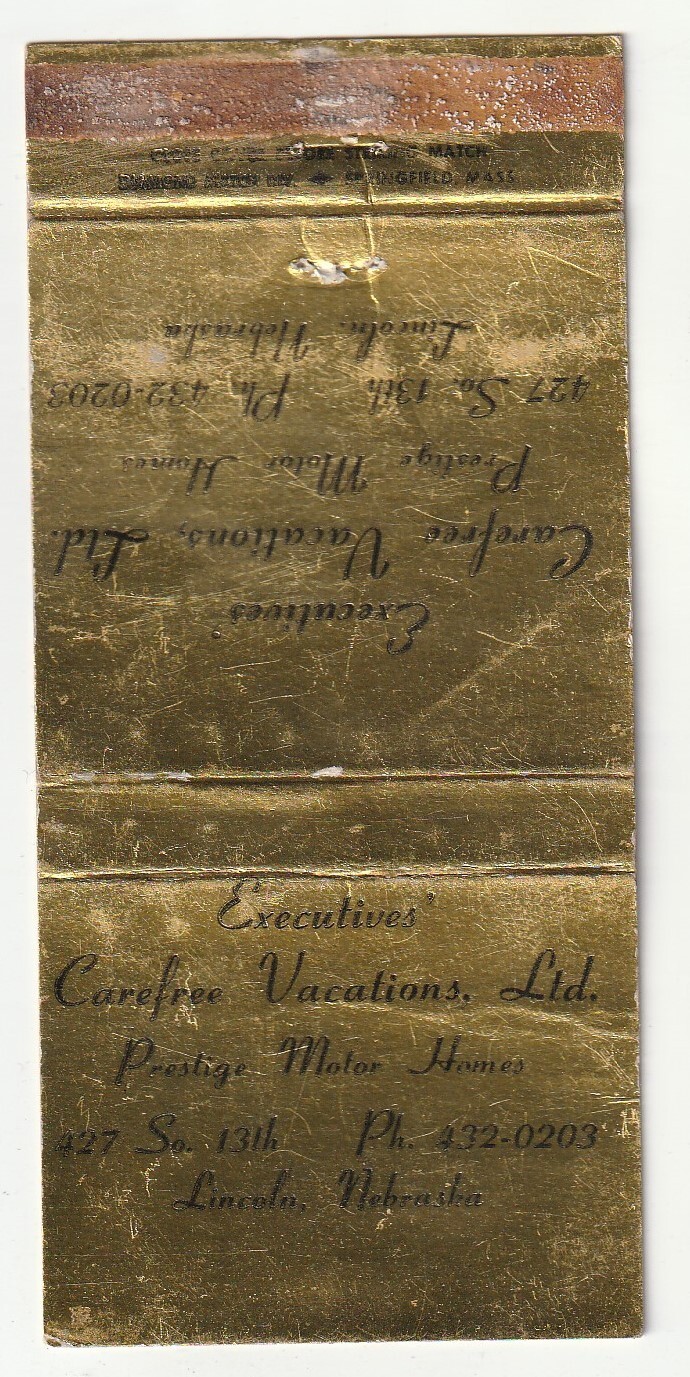 CLOSE COVER BEFORE STRIKING MATCH
DIAMOND MATCH DIV. SPRINGFIELD, MASS.
Executives'
Carefree Vacations, Ltd.
Prestige Motor Homes
427 So. 13th Ph. 432-0203
Lincoln, Nebraska
Executives'
Carefree Vacations, Ltd.
Prestige Motor Homes
427 So. 13th Ph. 432-0203
Lincoln, Nebraska